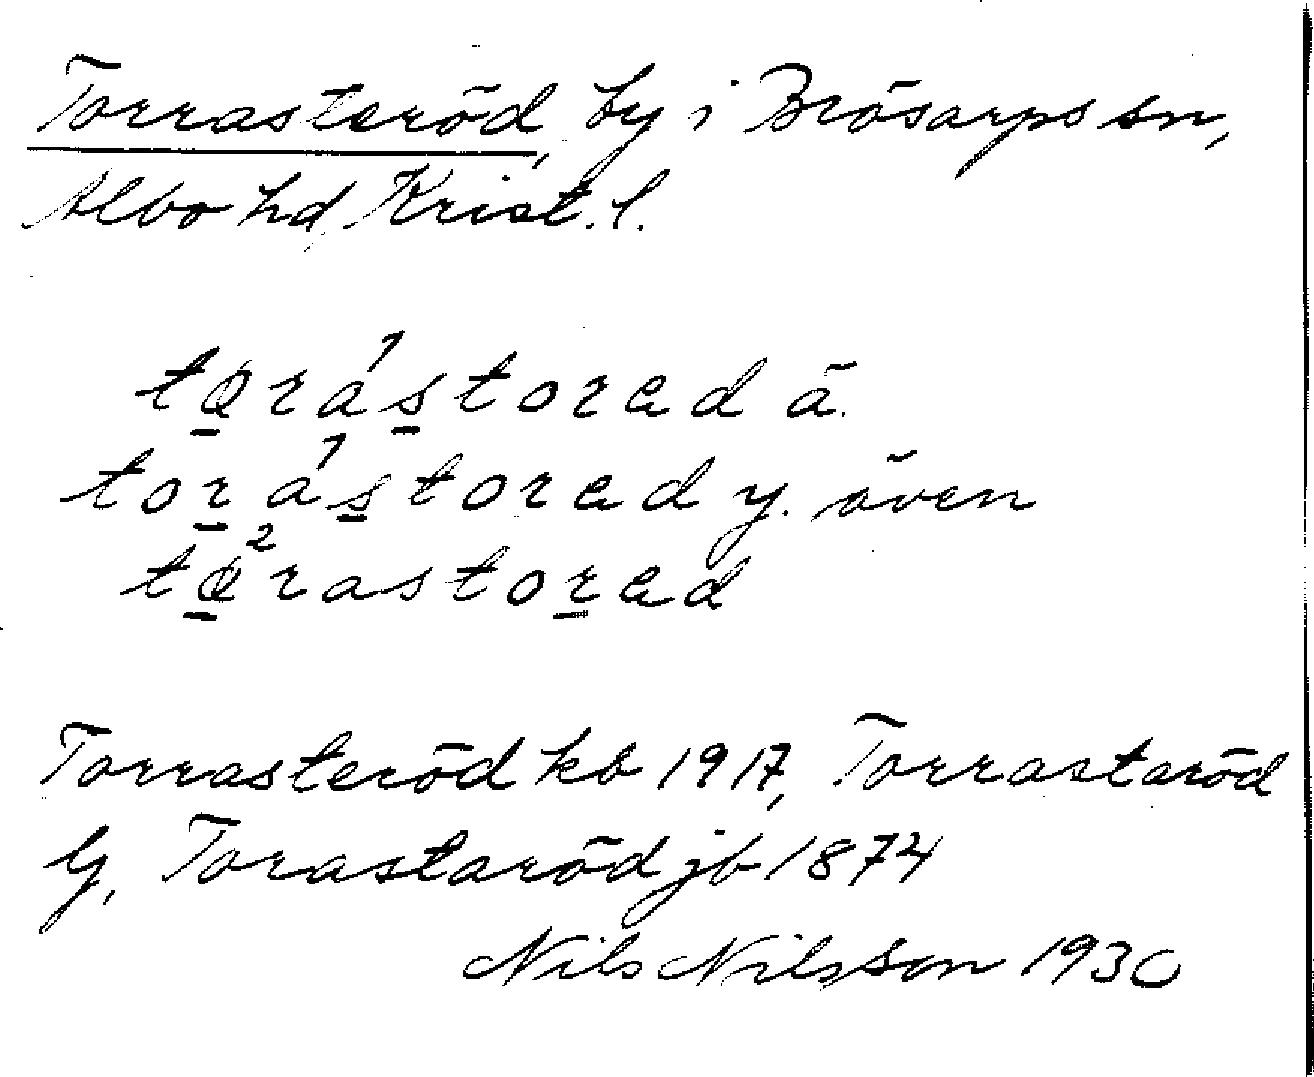 Torrasteröd, by i Brösarps sn,
Albo hd, Krist. l.
tøra´1stored ä.
tora´1stored y. även
tø2rastored
Torrasteröd kb 1917, Torrastaröd
G, Torastaröd jb 1874
Nils Nilsson 1930